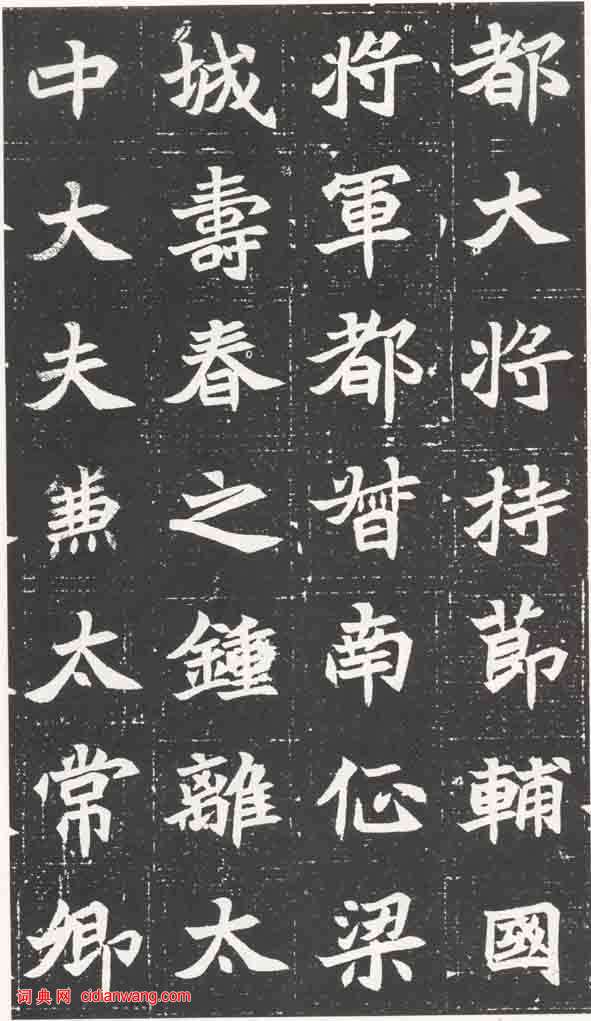 都大将持莭輔國
将軍都督南征梁
城壽春之鍾離太
中大夫兼太常卿
词典网 cidianwang.com